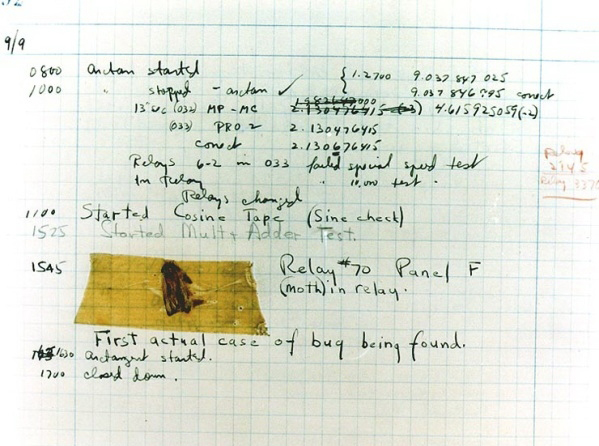 9/9
0800 arctan started { 1.2700 9.037 847 025
1000 " stopped - arctan ✓ 9.037 846 995 correct
13"uc (032) MP - MC 2.130476415 4.615925059(-2)
(033) PRO 2 2.130476415
correct 2.130676415
Relays 6-2 in 033 failed special speed test
In Relay " 10,000 test .
Relays changed
1100 Started Cosine Tape (Sine check)
1525 Started Mult + Adder Test.
1545 Relay #70 Panel F
(moth) in relay.
First actual case of bug being found.
1630 arctangent started.
1700 closed down.
Relay
3370